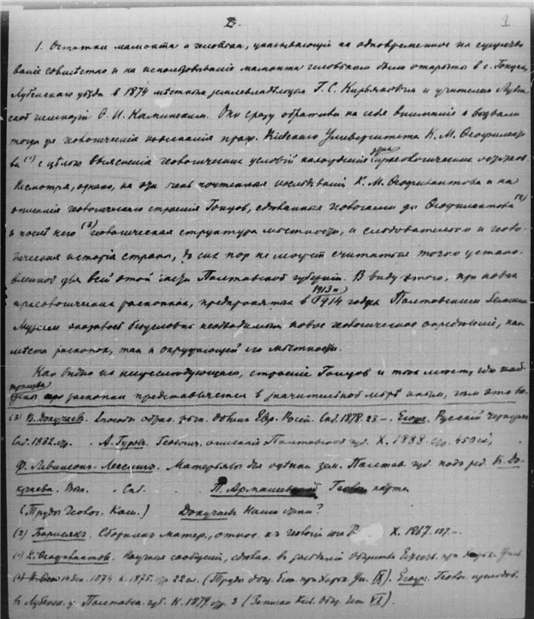 2. 1
1. Остатки мамонта и человека, указывающие на одновременное их существо-
вание совместно и на использование мамонта человеком были открыты в с. Гонцах
Лубенского уезда в 1874 местным землевладельцем Г. С. Кирьяковым и учителем Лубен-
ской гимназии Ф. И. Каминским. Они сразу обратили на себя внимание и вызвали
тогда же геологические изыскания проф. Киевского Университета К. М. Феофилакто-
ва (1) с целью выяснения геологических условий нахождения археологических
Несмотря, однако, на эти почтенные исследования К. М. Феофилактова и на
описания геологического строения Гонцов, сделанные геологами до Феофилактова (2)
и после него (3) геологическая структура местности, и следовательно и геоло-
гическая история страны, до сих пор не могут считаться точно установ-
ленной для всей этой части Полтавской губернии. В виду этого, при новых
археологических раскопках, предпринятых в 1913 и 1914 годах Полтавским Земским
Музеем оказалось безусловно необходимым новое геологическое определение, как
места раскопок, так и окружающей его местности.
Как видно из нижеследующего, строение Гонцов и того места, где
раскопки представляется в значительной мере иным, чем это
(2) В. Докучаев. Способы образ. речн. долин Евр. Росс. Спб. 1878. Русский чернозем
Спб. 1882. А. Гуров. Геологич. описание Полтавской губ. Х. 1888
Ф. Левинсон-Лессинг. Материалы для оценки зем. Полтав. губ. под ред. В. До-
кучаева. Вып. Спб. П. Армашевский Геол. карта
(Труды Геолог. Ком.) Докучаев Наши степи?
(3) Борисяк. Сборник матер., относ. к геологии Х. 1867.
(1) К. Феофилактов. Научные сообщения, сделан. в заседании Общества Естеств. при
1874. К. 1875. (Труды Общ. Ест. при Харьк. Ун. IX). Геолог. исследов.
в Лубенск. у. Полтавск. губ. К. 1879 стр. 3 (Записки Киев. Общ. Ест. VI).